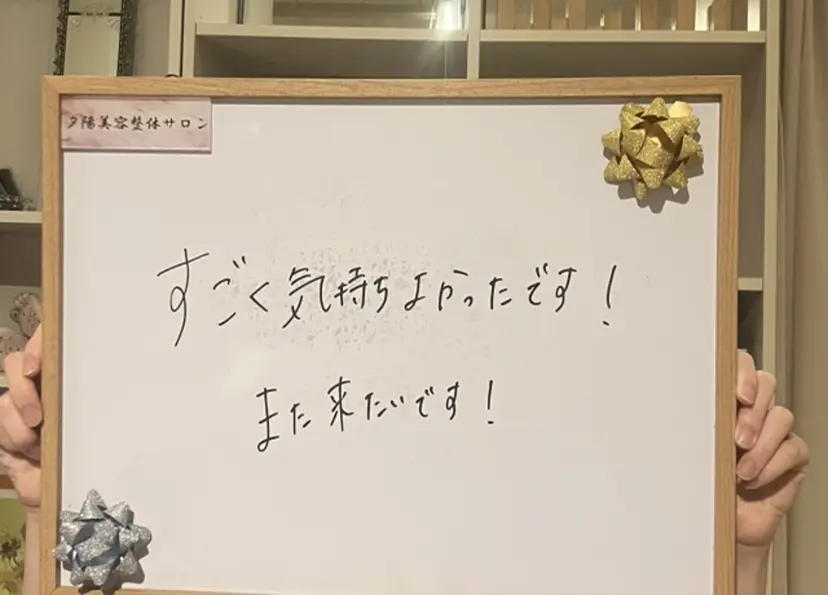 夕陽美容整体サロン
すごく気持ちよかったです！
また来たいです！